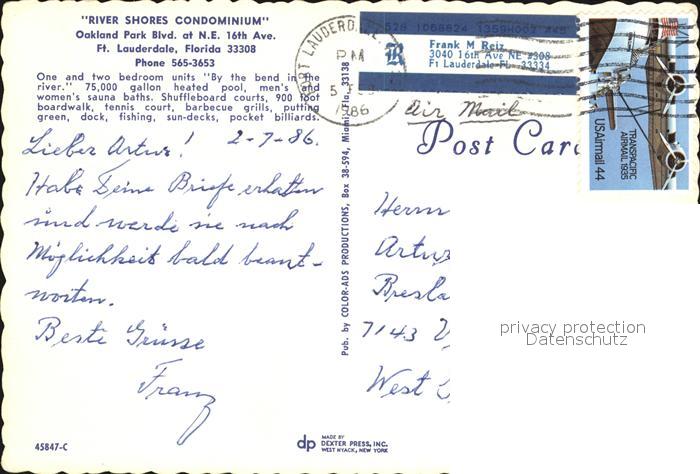 "RIVER SHORES CONDOMINIUM"
Oakland Park Blvd. at N.E. 16th Ave.
Ft. Lauderdale, Florida 33308
Phone 565-3653
One and two bedroom units "By the bend in the
river." 75,000 gallon heated pool, men's and
women's sauna baths. Shuffleboard courts, 900 foot
boardwalk, tennis court, barbecue grills, putting
green, dock, fishing, sun-decks, pocket billiards.
2-7-86.
Lieber Artur!
Habe Deine Briefe erhalten
und werde sie nach
Möglichkeit bald beant-
worten.
Beste Grüsse
Franz
45847-C
Pub. by COLOR-ADS PRODUCTIONS, Box 38-594, Miami, Fla. 33138
dp MADE BY
DEXTER PRESS, INC.
WEST NYACK, NEW YORK
FORT LAUDERDALE
PM
1986
R
Frank M Reiz
3040 16th Ave NE #308
Ft Lauderdale FL 33334
Air Mail
Post Car
TRANSPACIFIC
AIRMAIL 1935
USAirmail 44
Herrn
Artur
Bresla
7143
West
privacy protection
Datenschutz